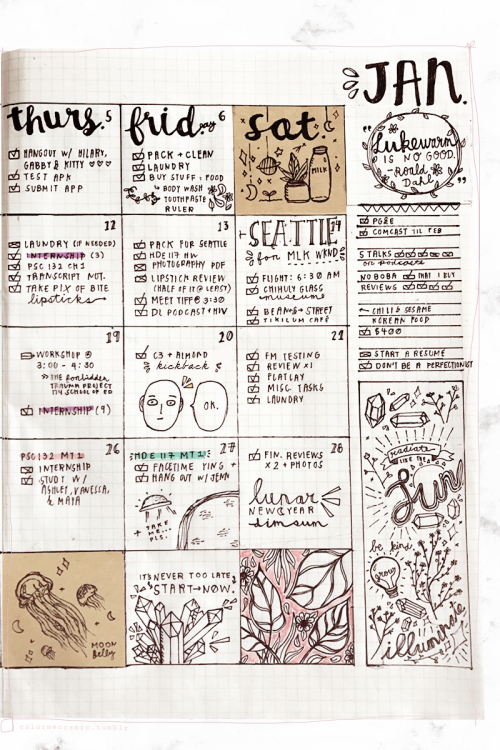 JAN.
thurs. 5
frid.ay 6
sat.
HANGOUT W/ HILARY,
GABBY & KITTY ♡♡♡
TEST APK
SUBMIT APP
PACK + CLEAN
LAUNDRY
BUY STUFF: FOOD
↳ BODY WASH
TOOTHPASTE
RULER
MILK
"Lukewarm
IS NO GOOD.
-Roald
Dahl"
12
LAUNDRY (IF NEEDED)
INTERNSHIP (3)
PSC 132 CH2
TRANSCRIPT NUT.
TAKE PIX OF BITE
lipsticks
13
PACK FOR SEATTLE
HDE 117 HW
PHOTOGRAPHY PDF
LIPSTICK REVIEW
(HALF OF IT @ LEAST)
MEET TIFF @ 3:30
DL PODCAST + HW
SEATTLE 14
for MLK WKND
FLIGHT: 6:30 AM
CHIHULY GLASS
museum
BEANS + STREET
TIKILUM CAFÉ
PG&E
COMCAST TIL FEB
5 TALKS
or podcasts
NO BOBA THAT I BUY
REVIEWS
CHILI & SESAME
KOREAN FOOD
$400
START A RESUME
DON'T BE A PERFECTIONIST
19
WORKSHOP @
3:00 - 4:30
» The forbidden
TRAUMA PROJECT
@ SCHOOL OF ED
INTERNSHIP (9)
20
C3 + ALMOND
kickback
OK.
21
FM TESTING
REVIEW X1
FLATLAY
MISC. TASKS
LAUNDRY
26
PSC 132 MT 1
INTERNSHIP
STUDY W/
ASHLEY, VANESSA,
& MAYA
HDE 117 MT 1 27
FACETIME YING +
HANG OUT W/ JENN
TAKE
ME...
PLS.
28
FIN. REVIEWS
X 2 + PHOTOS
lunar
NEW YEAR
dim sum
radiate
LIKE THE
Sun
be kind.
grow
illuminate
MOON
Jelly
IT'S NEVER TOO LATE
START → NOW.